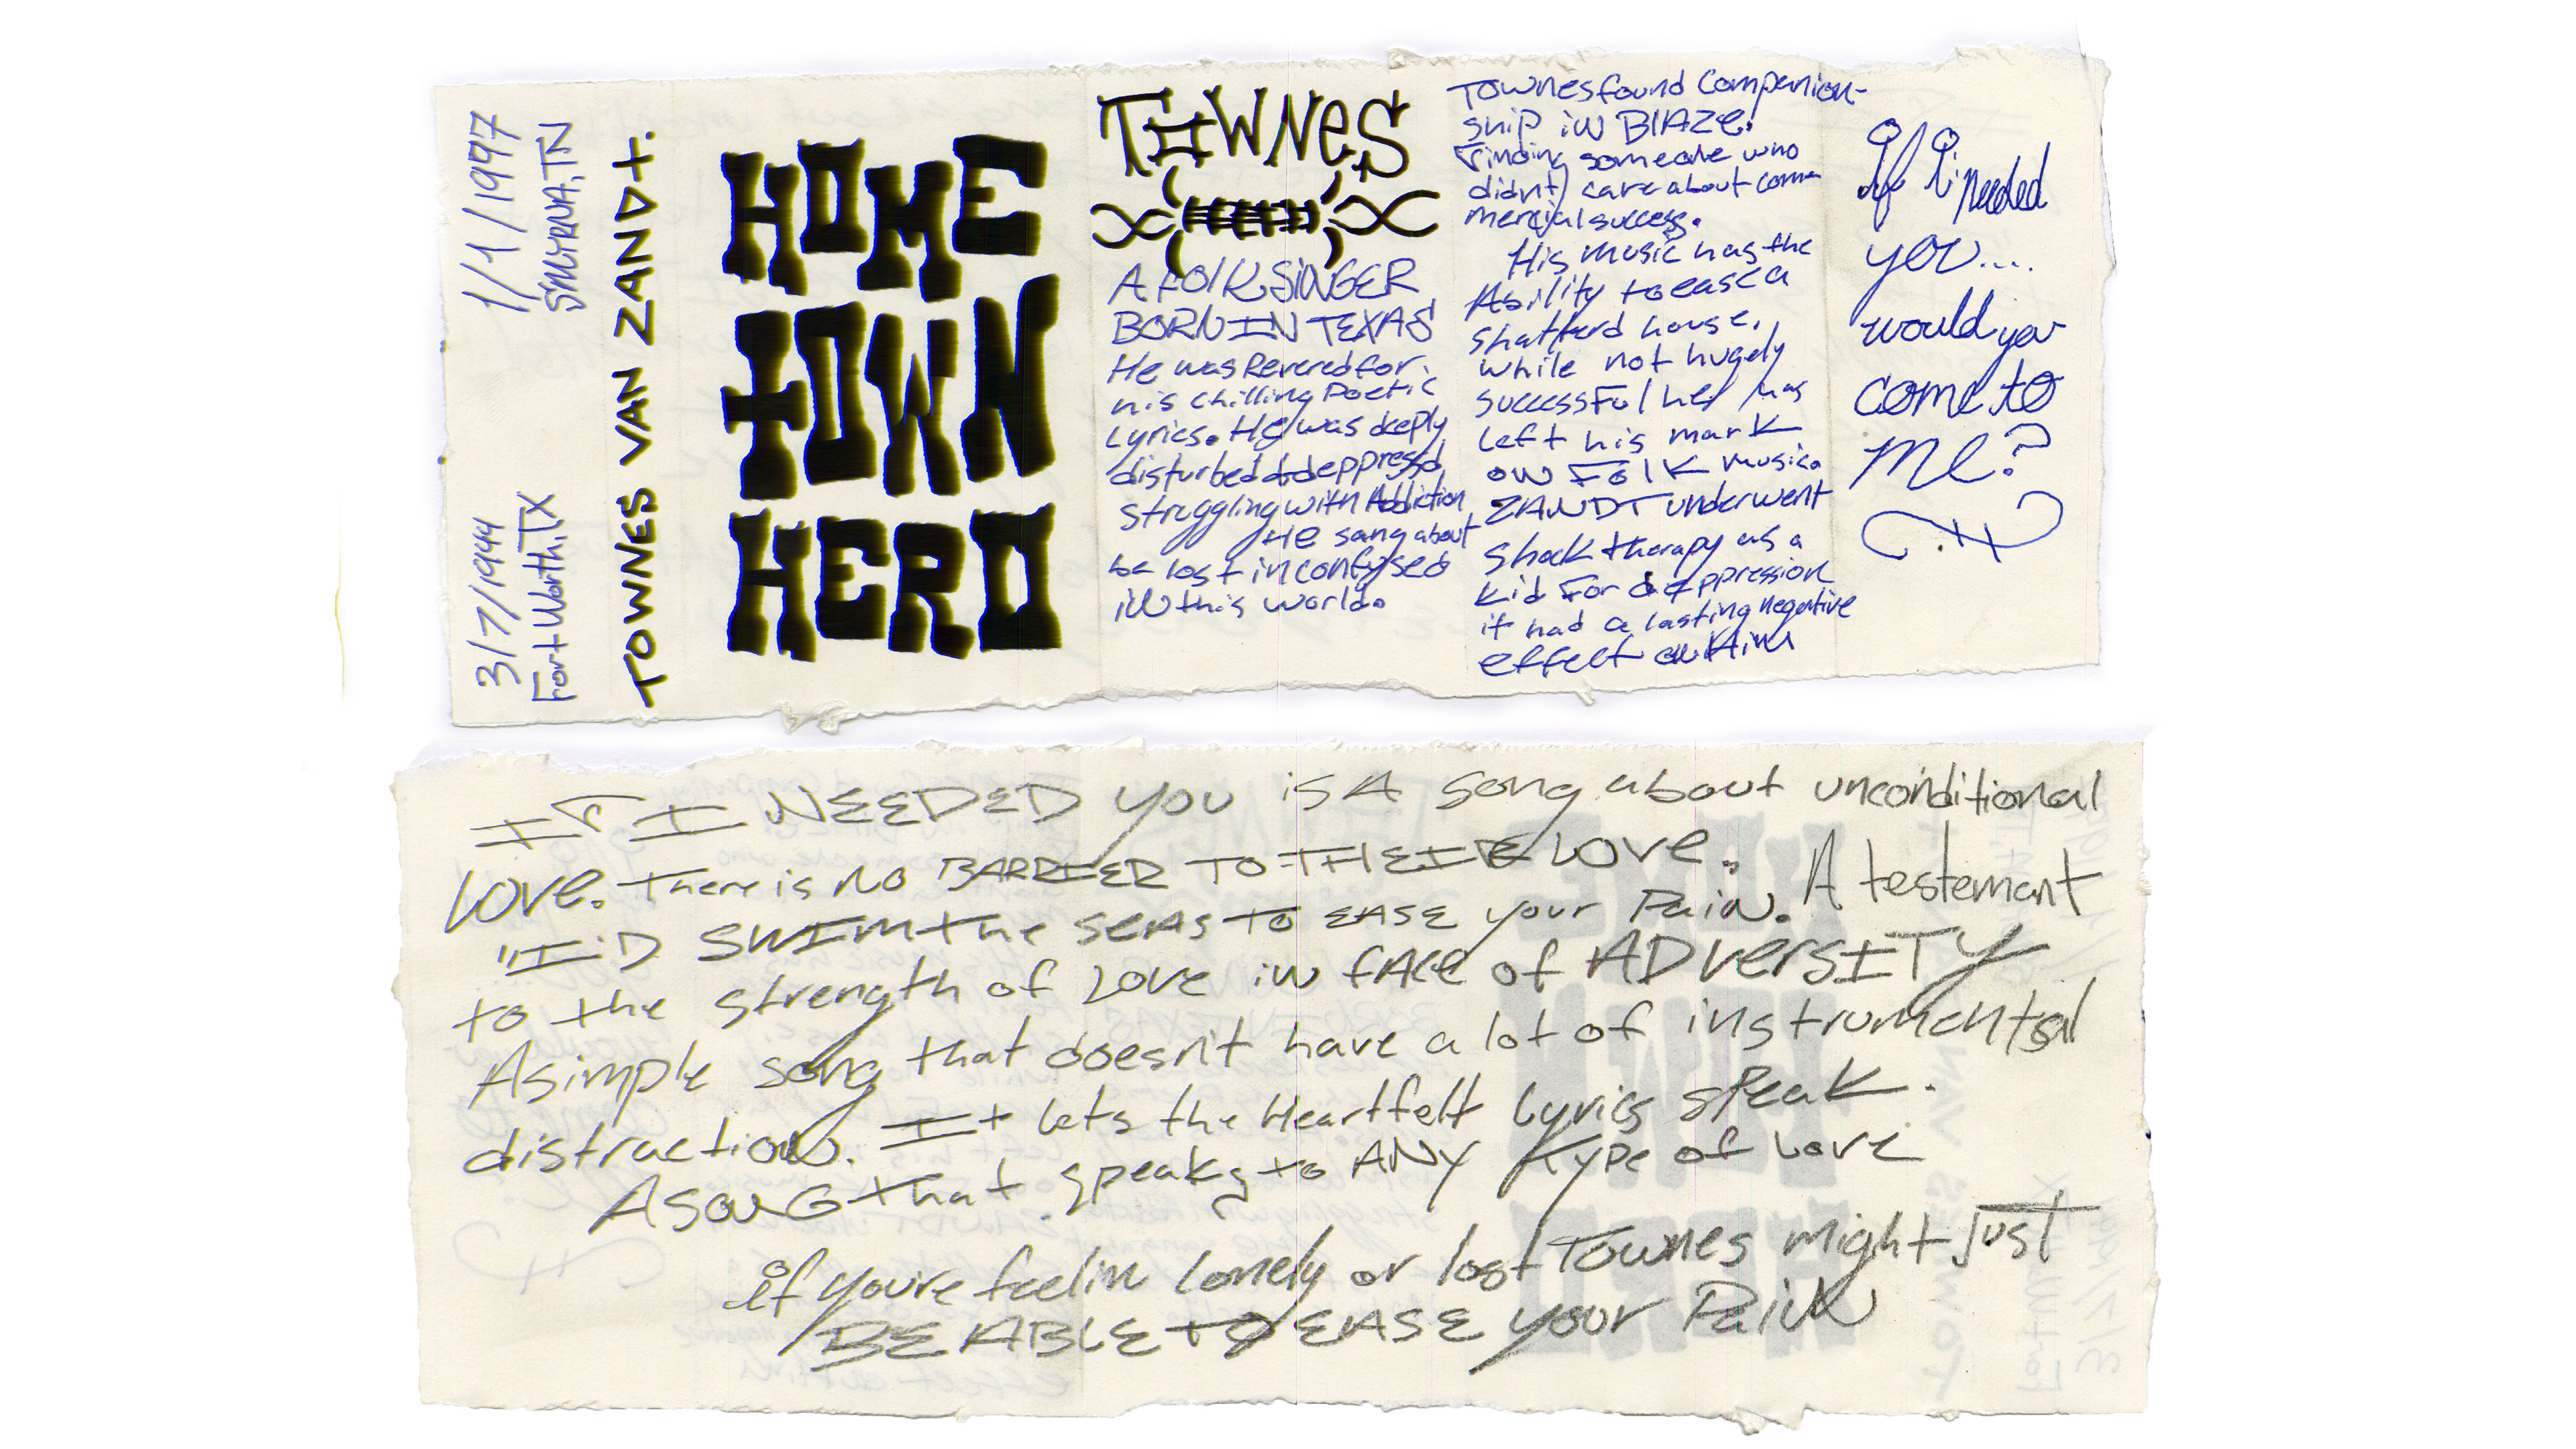 1/1/1997
SMYRNA, TN
3/7/1944
Fort Worth, TX
TOWNES VAN ZANDT.
HOME
TOWN
HERO
TOWNES
A FOLK SINGER
BORN IN TEXAS
He was Revered for
his chilling Poetic
Lyrics. He was deeply
disturbed & deppressd
struggling with Addiction
He sang about
be lost in confused
in this world.
Townes found Companion-
ship in BlAZe!
Finding someone who
didn't care about com-
mercial success.
His music has the
Ability to ease a
shatterd house.
while not hugely
successful he has
left his mark
on Folk music.
ZANDT underwent
shock therapy as a
kid For deppression
it had a lasting negative
effect on him
If I needed
you....
would you
come to
me?
IF I NEEDED you is A song about unconditional
LOVe. There is no BARRIER TO THEIR LOVe.
"I'D SWIM the seas TO EASE your Pain. A testemant
to the strength of Love in fACe of ADversITY
A simple song that doesn't have a lot of instrumental
distraction. It lets the Heartfelt Lyrics speak.
A sonG that speaks to ANY type of Love
if you're feelin lonely or lost Townes might Just
BE ABLE to EASE your Pain